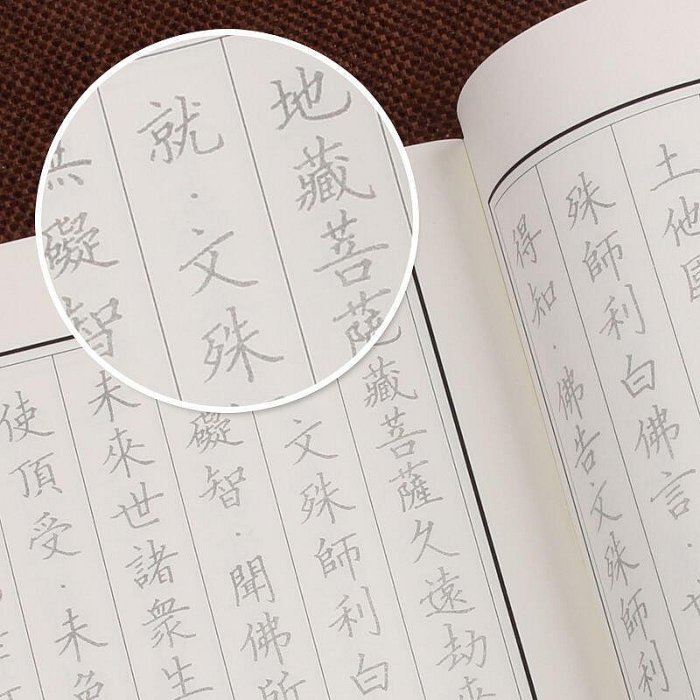 土他國
殊師利白佛言．
得知．佛告文殊師利
地藏菩薩
就．文殊
無礙智
藏菩薩久遠劫來
文殊師利白
礙智．聞佛所
未來世諸衆生
使頂受．未免